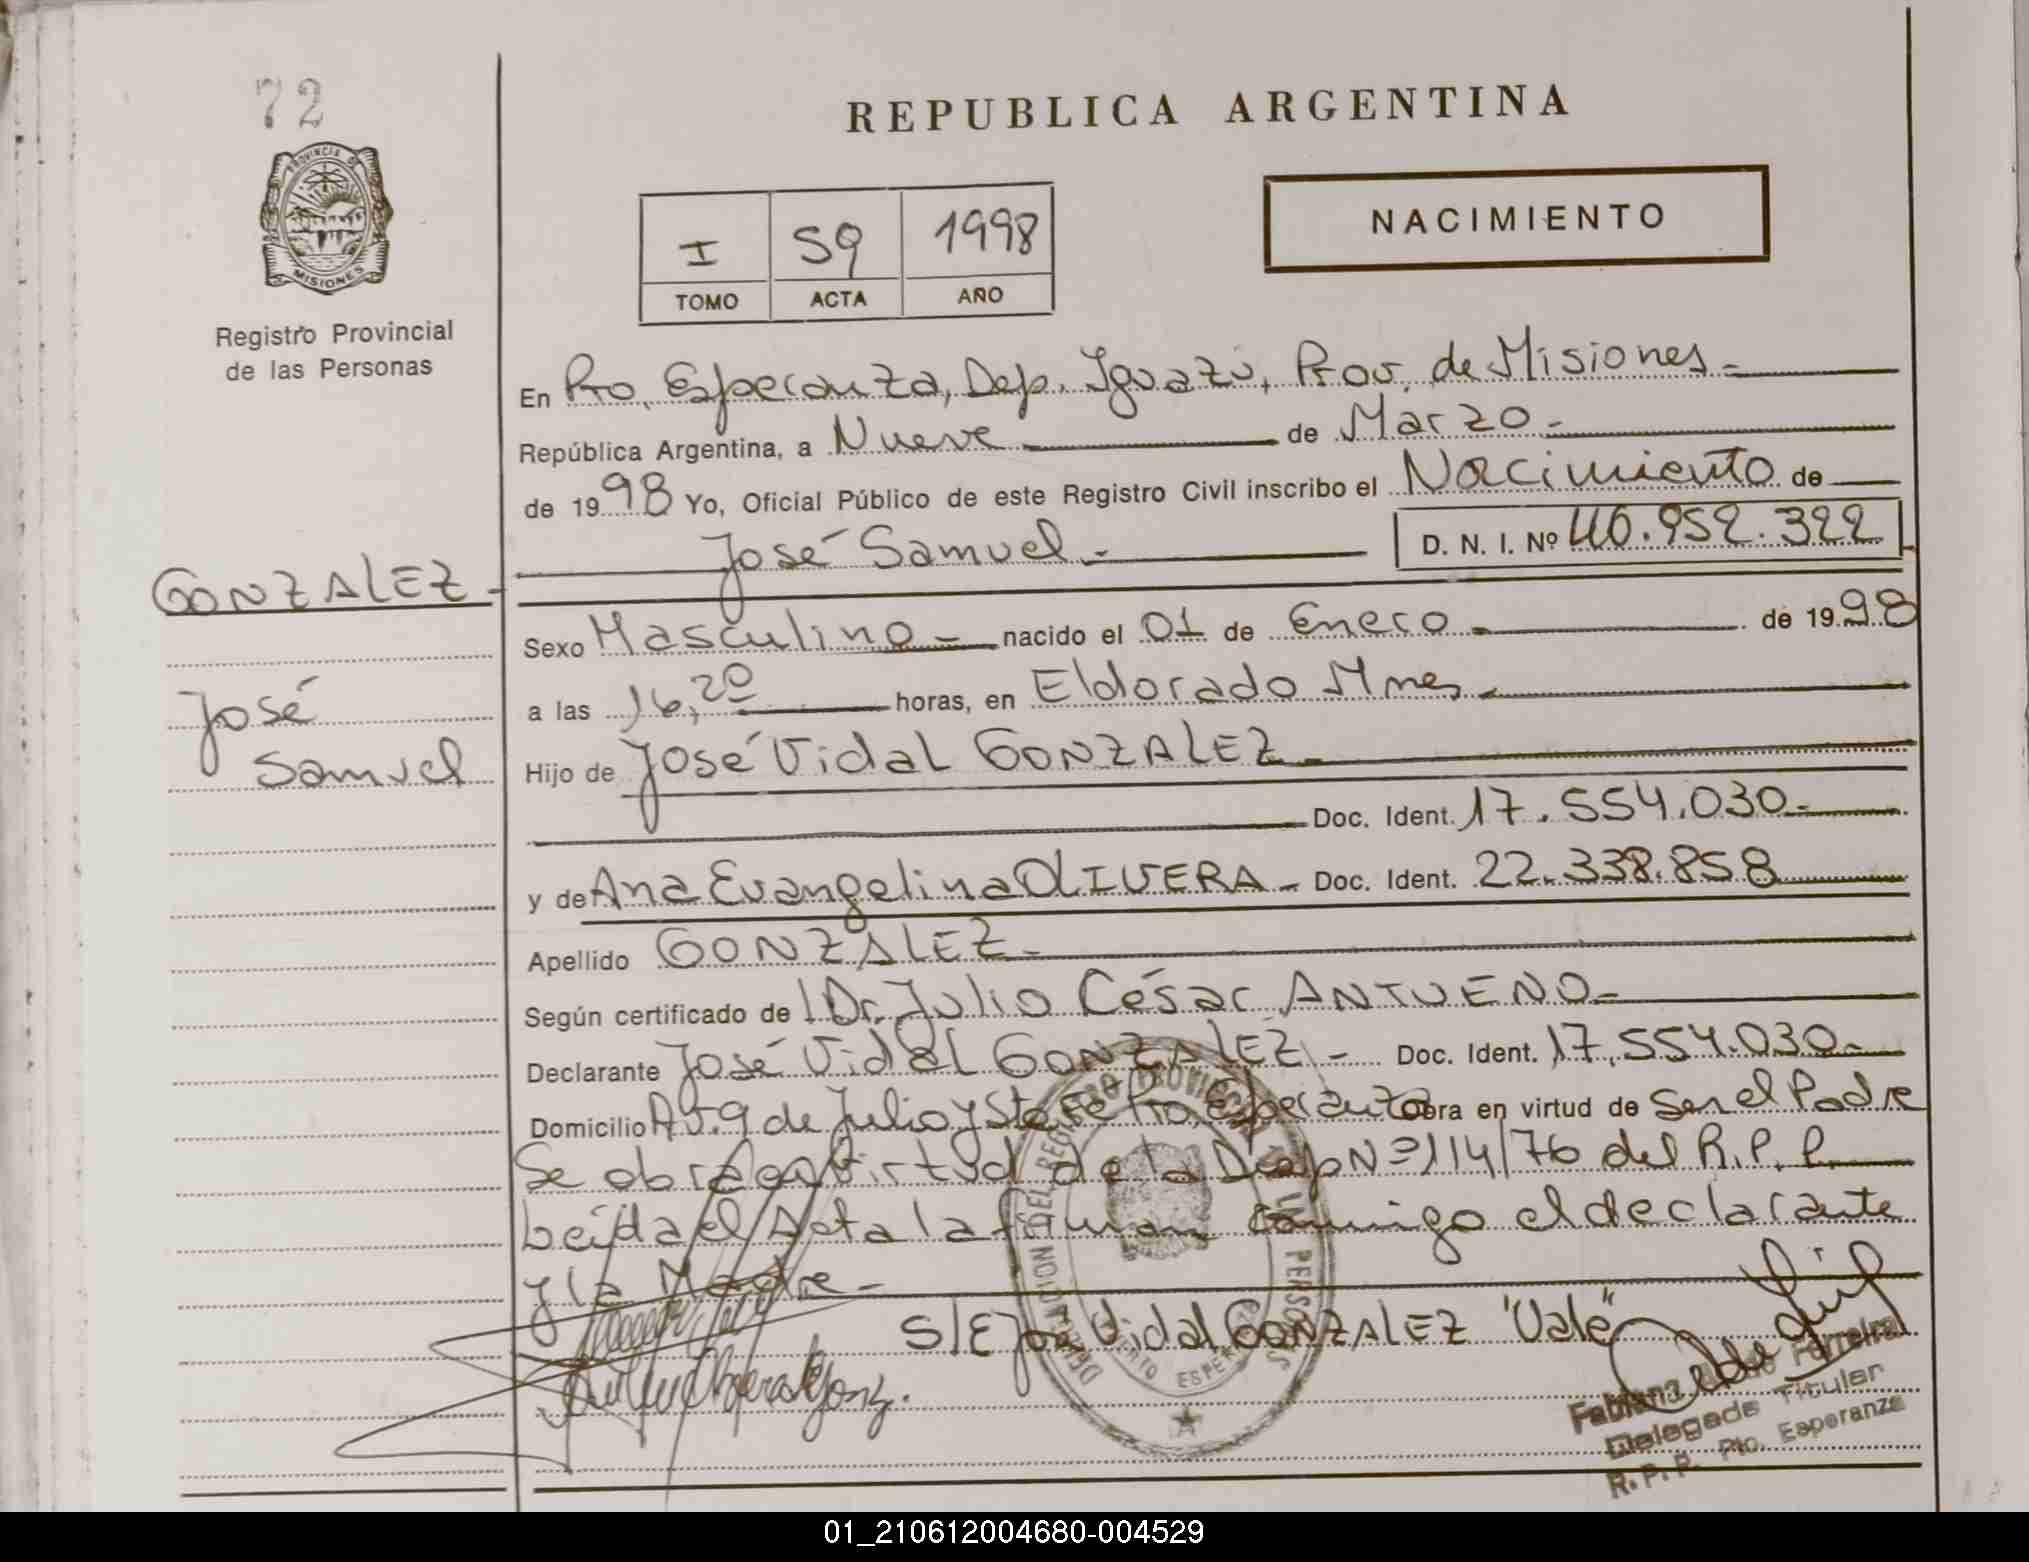 72
REPUBLICA ARGENTINA
PROVINCIA DE
MISIONES
I 59 1998
TOMO ACTA AÑO
NACIMIENTO
Registro Provincial
de las Personas
En Pto. Esperanza, Dep. Iguazú, Prov. de Misiones -
República Argentina, a Nueve de Marzo -
de 1998 Yo, Oficial Público de este Registro Civil inscribo el Nacimiento de
José Samuel - D. N. I. Nº 40.952.322
GONZALEZ -
José
Samuel
Sexo Masculino - nacido el 01 de Enero - de 1998
a las 16,20 horas, en Eldorado Mnes -
Hijo de José Vidal GONZALEZ -
Doc. Ident. 17.554.030 -
y de Ana Evangelina OLIVERA - Doc. Ident. 22.338.858
Apellido GONZALEZ -
Según certificado de Dr. Julio César ANTUENO -
Declarante José Vidal GONZALEZ - Doc. Ident. 17.554.030 -
Domicilio Av. 9 de Julio y Sta Fe Pto. Esperanza obra en virtud de Ser el Padre
Se obra en virtud de la Disp Nº 114/76 del R. P. P.
Leída el Acta la firman conmigo el declarante
y la Madre -
S/E José Vidal GONZALEZ "Vale"
DELEGACION DEL REGISTRO PROVINCIAL DE LAS PERSONAS
PUERTO ESPERANZA
Fabiana Ferreira
Delegada Titular
R. P. P. Pto. Esperanza
01_210612004680-004529